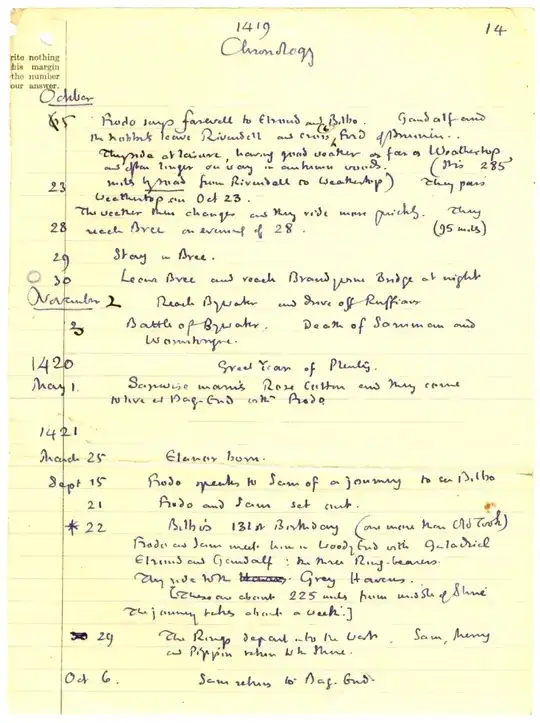 1419
14
Chronology
rite nothing
his margin
the number
our answer.
October
5 Frodo says farewell to Elrond and Bilbo. Gandalf and
the hobbits leave Rivendell and cross Ford of Bruinen..
They ride at leisure, having good weather as far as Weathertop
and often linger on way in autumn woods. (This 285
miles by road from Rivendell to Weathertop) They pass
23 Weathertop on Oct 23.
The weather then changes and they ride more quickly. They
28 reach Bree on evening of 28. (95 miles)
29 Stay in Bree.
30 Leave Bree and reach Brandywine Bridge at night
November 2 Reach Bywater and drive off Ruffians
3 Battle of Bywater. Death of Saruman and
Wormtongue.
1420 Great Year of Plenty.
May 1. Samwise marries Rose Cotton and they come
to live at Bag-End with Frodo
1421
March 25 Elanor born.
Sept 15 Frodo speaks to Sam of a journey to see Bilbo
21 Frodo and Sam set out.
* 22 Bilbo's 131st Birthday (one more than Old Took)
Frodo and Sam meet him in Woody End with Galadriel
Elrond and Gandalf : the three Ring-bearers.
They ride to the Grey Havens.
[These are about 225 miles from middle of Shire
The journey takes about a week.]
29 The Rings depart into the West. Sam, Merry
and Pippin return to the Shire.
Oct 6. Sam returns to Bag-End.